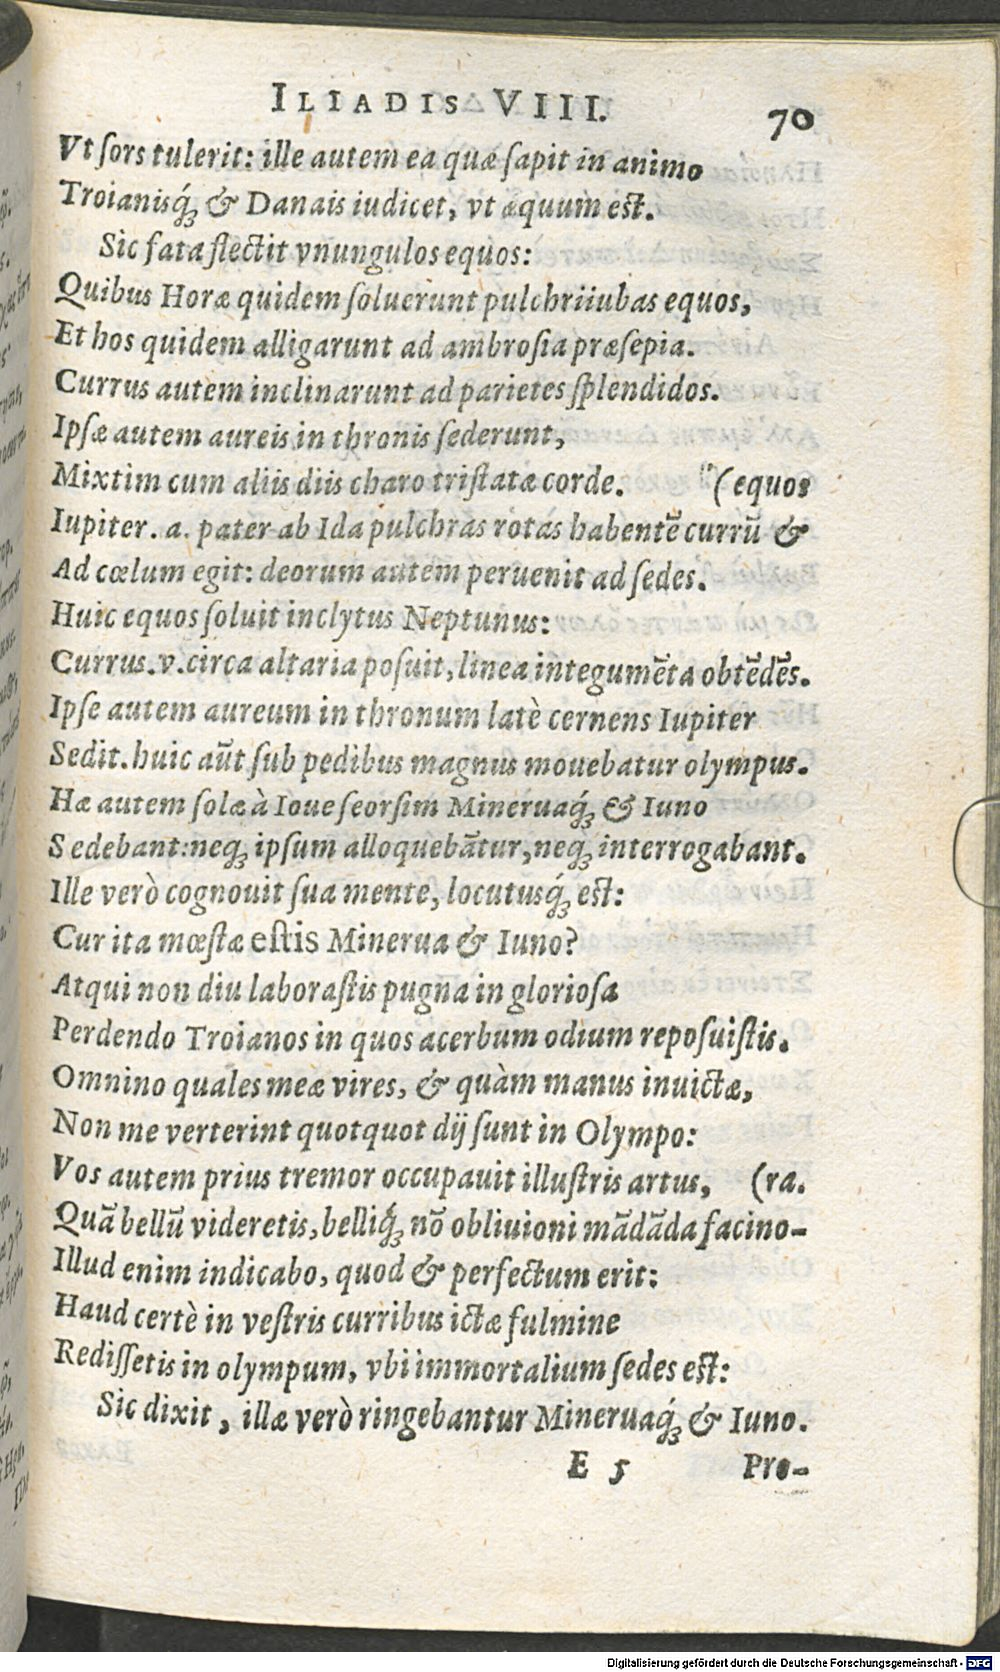 ILIADIS VIII. 70
Vt ſors tulerit: ille autem ea quæ ſapit in animo
Troianisq́; & Danais iudicet, vt æquum est.
Sic fata flectit vnungulos equos:
Quibus Horæ quidem ſoluerunt pulchriiubas equos,
Et hos quidem alligarunt ad ambroſia præſepia.
Currus autem inclinarunt ad parietes ſplendidos.
Ipſæ autem aureis in thronis ſederunt,
Mixtim cum aliis diis charo triſtatæ corde. (equos
Iupiter. a. pater ab Ida pulchras rotas habentē currū &
Ad cœlum egit: deorum autem peruenit ad ſedes.
Huic equos ſoluit inclytus Neptunus:
Currus.v.circa altaria poſuit, linea integumēta obtēdēs.
Ipſe autem aureum in thronum latè cernens Iupiter
Sedit. huic aūt ſub pedibus magnus mouebatur olympus.
Hæ autem ſolæ à Ioue ſeorſim Mineruaq́; & Iuno
Sedebant:neq; ipſum alloquebātur,neq; interrogabant.
Ille verò cognouit ſua mente, locutusq́; est:
Cur ita mœſtæ eſtis Minerua & Iuno?
Atqui non diu laboraſtis pugna in glorioſa
Perdendo Troianos in quos acerbum odium repoſuiſtis.
Omnino quales meæ vires, & quàm manus inuictæ,
Non me verterint quotquot dij ſunt in Olympo:
Vos autem prius tremor occupauit illuſtris artus, (ra.
Quā bellū videretis, belliq́; nō obliuioni mādāda facino-
Illud enim indicabo, quod & perfectum erit:
Haud certè in veſtris curribus ictæ fulmine
Rediſſetis in olympum, vbi immortalium ſedes est:
Sic dixit, illæ verò ringebantur Mineruaq́; & Iuno.
E 5 Pro-
Digitalisierung gefördert durch die Deutsche Forschungsgemeinschaft - DFG